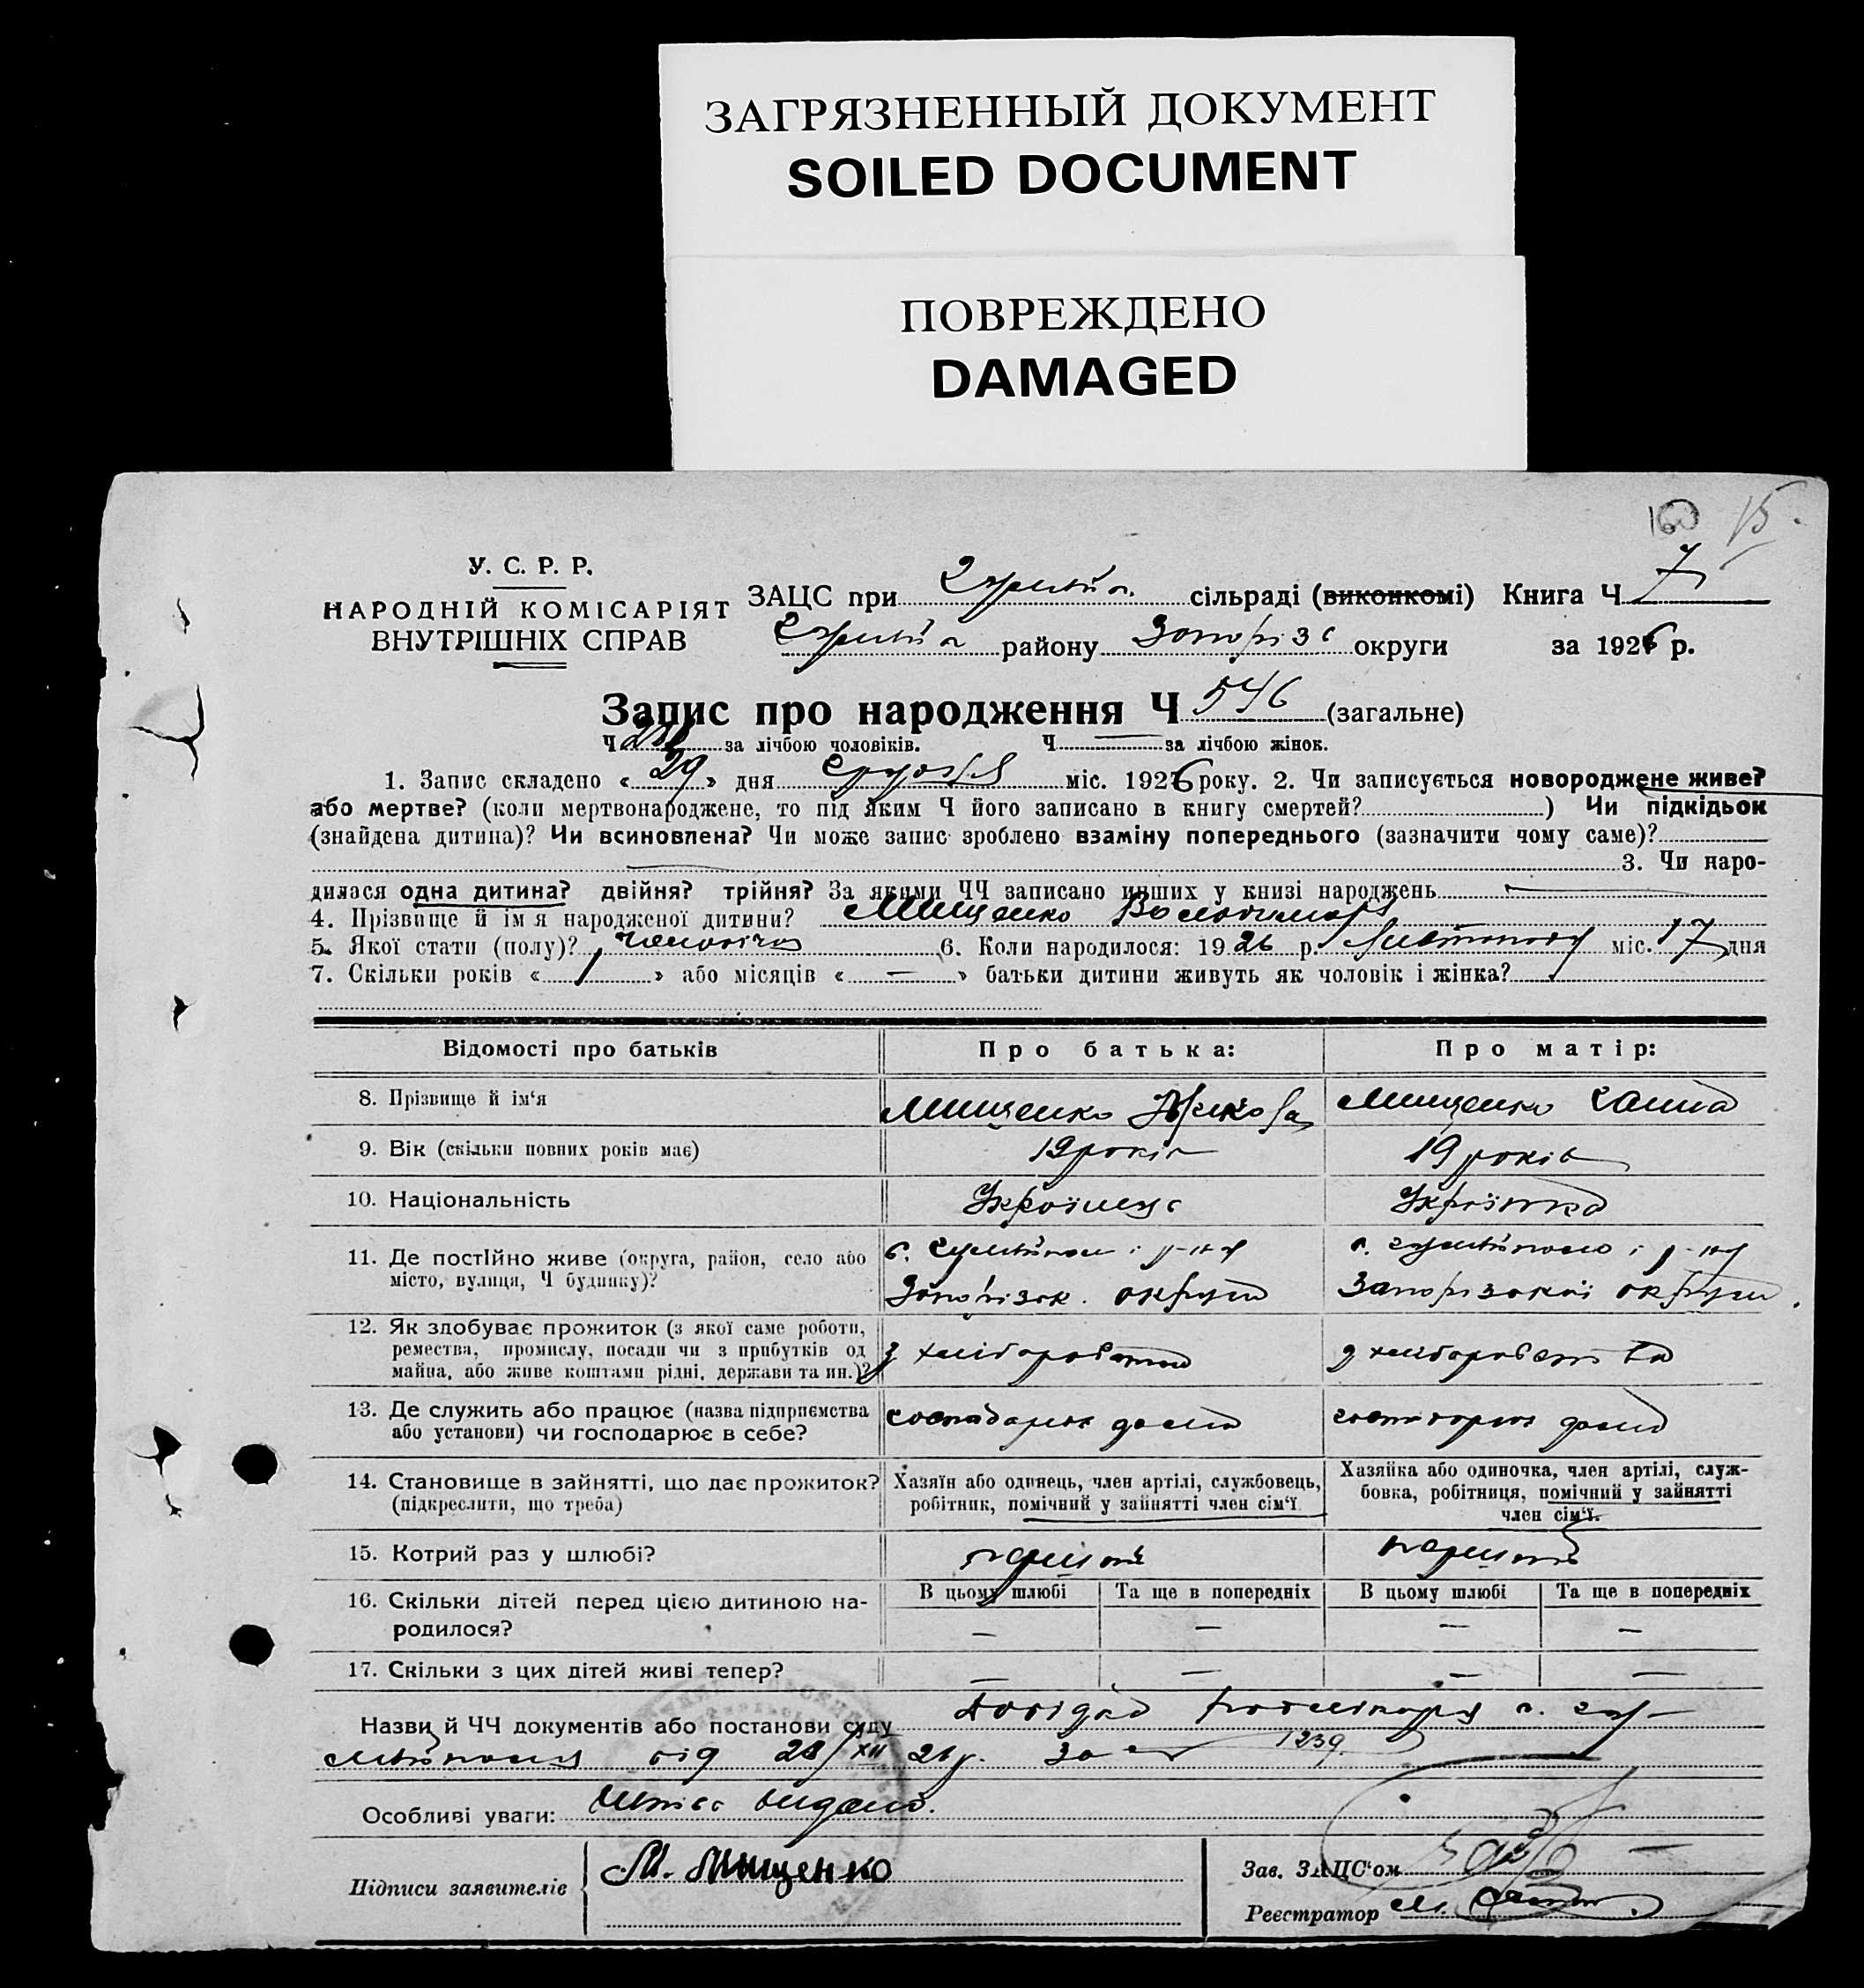 ЗАГРЯЗНЕННЫЙ ДОКУМЕНТ
SOILED DOCUMENT
ПОВРЕЖДЕНО
DAMAGED
15.
У. С. Р. Р.
НАРОДНІЙ КОМІСАРІЯТ
ВНУТРІШНІХ СПРАВ
ЗАЦС при сільраді (виконкомі) Книга Ч 7
району Запоріз округи за 1926 р.
Запис про народження Ч 546 (загальне)
Ч за лічбою чоловіків. Ч — за лічбою жінок.
1. Запис складено « 29 » дня Грудня міс. 1926 року. 2. Чи записується новороджене живе?
або мертве? (коли мертвонароджене, то під яким Ч його записано в книгу смертей? ) Чи підкідьок
(знайдена дитина)? Чи всиновлена? Чи може запис зроблено взаміну попереднього (зазначити чому саме)?
3. Чи наро-
дилася одна дитина? двійня? трійня? За якими ЧЧ записано инших у книзі народжень
4. Прізвище й ім'я народженої дитини? Мищенко Володимир
5. Якої стати (полу)? чоловіча 6. Коли народилося: 1926 р. Листопаду міс. 17 дня
7. Скільки років « 1 » або місяців « — » батьки дитини живуть як чоловік і жінка?
Відомості про батьків Про батька: Про матір:
8. Прізвище й ім'я Мищенко Мищенко Ганна
9. Вік (скільки повних років має) 19 років 19 років
10. Національність Українець Українка
11. Де постійно живе (округа, район, село або
місто, вулиця, Ч будинку)?
с. Гуляйполе і р-ну с. Гуляйполе і р-ну
Запорізьк. округи Запорізької округи.
12. Як здобуває прожиток (з якої саме роботи,
ремества, промислу, посади чи з прибутків од
майна, або живе коштами рідні, держави та ин.)?
з хліборобства з хліборобства
13. Де служить або працює (назва підприємства
або установи) чи господарює в себе?
господарює дома господарює дома
14. Становище в зайнятті, що дає прожиток?
(підкреслити, що треба)
Хазяїн або одинець, член артілі, службовець,
робітник, помічний у зайнятті член сім'ї.
Хазяйка або одиночка, член артілі, служ-
бовка, робітниця, помічний у зайнятті
член сім'ї.
15. Котрий раз у шлюбі? перший перший
16. Скільки дітей перед цією дитиною на-
родилося?
В цьому шлюбі Та ще в попередніх В цьому шлюбі Та ще в попередніх
— — — —
17. Скільки з цих дітей живі тепер? — — — —
Назви й ЧЧ документів або постанови суду Довідка с. Гу-
ляйполя від 28/XII 26 р. за № 1239.
Особливі уваги: видано.
Підписи заявителів М. Мищенко
Зав. ЗАЦС'ом
Реєстратор